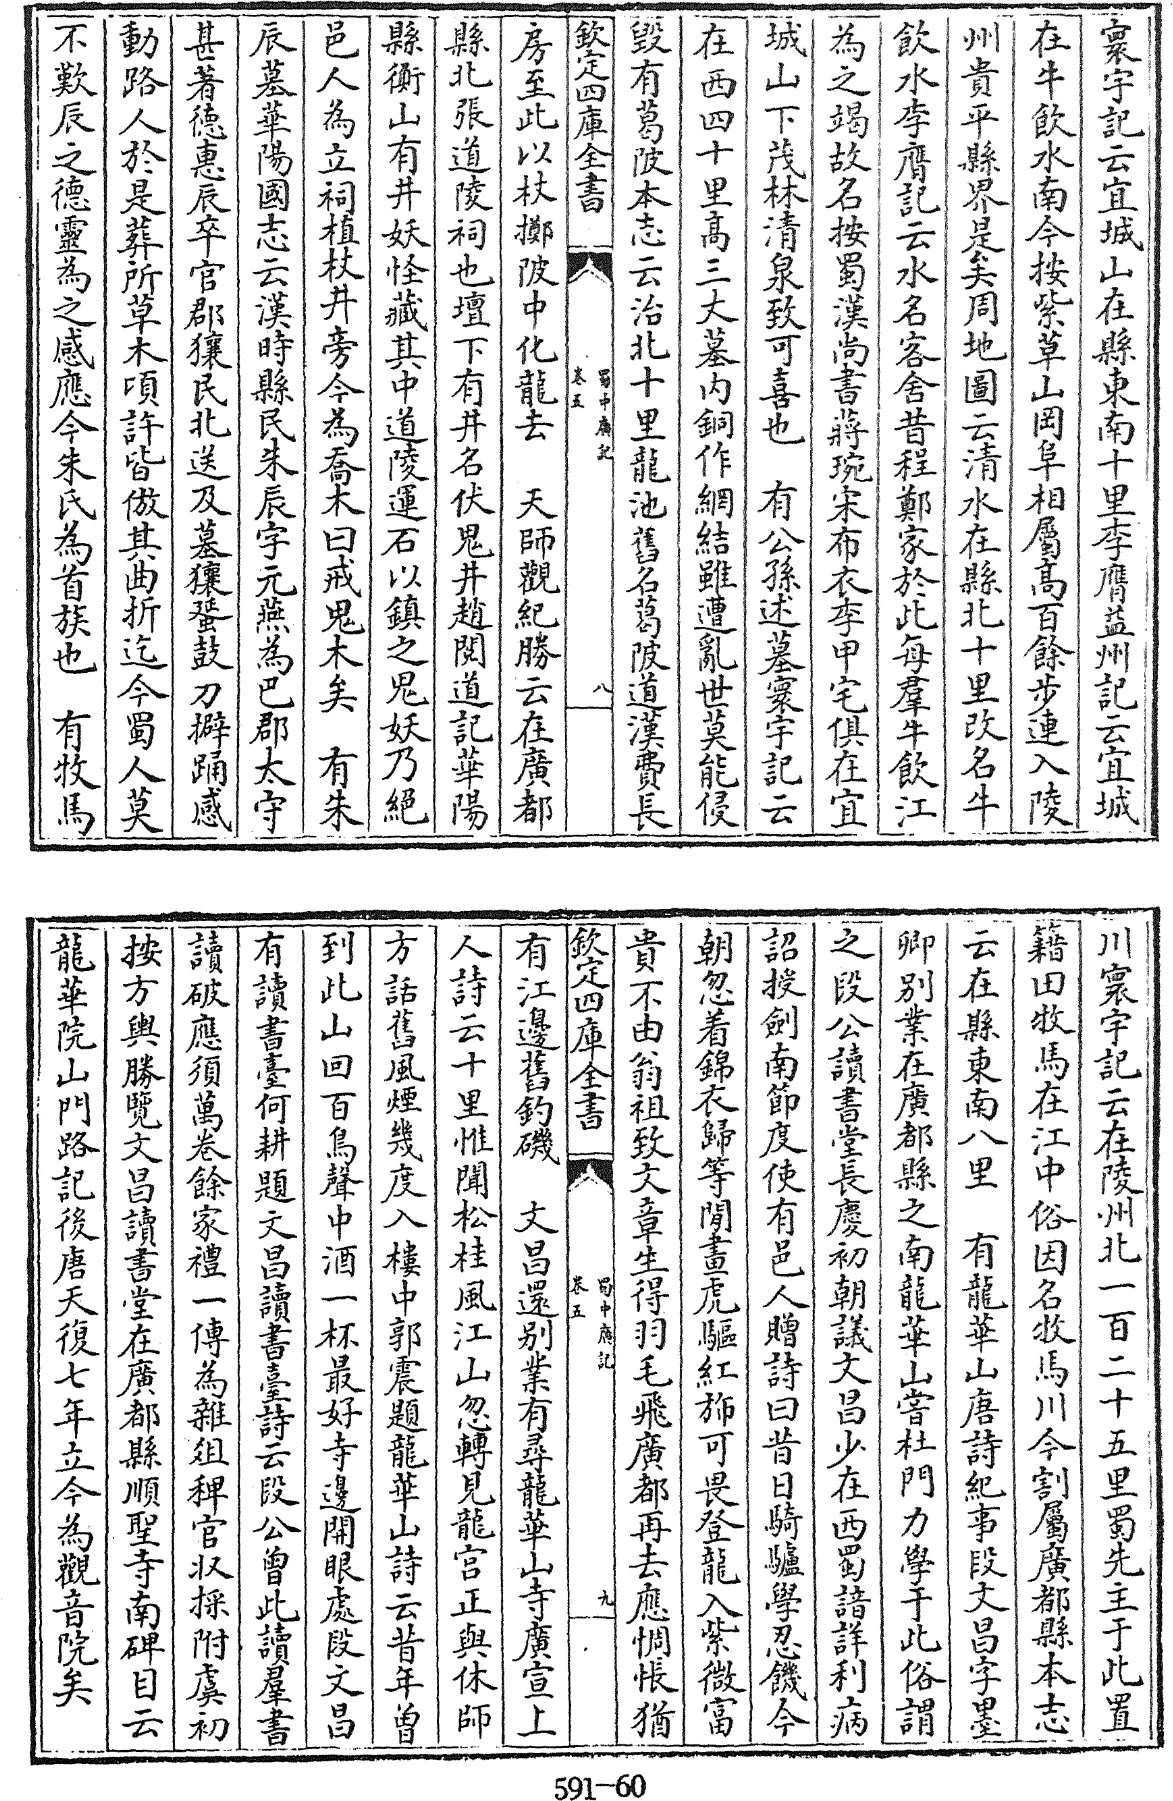 寰宇記云宜城山在縣東南十里李膺益州記云宜城
在牛飲水南今按紫草山岡阜相屬高百餘步連入陵
州貴平縣界是矣周地圖云清水在縣北十里改名牛
飲水李膺記云水名客舍昔程鄭家於此每羣牛飲江
為之竭故名按蜀漢尚書蔣琬宋布衣李甲宅俱在宜
城山下茂林清泉致可喜也　有公孫述墓寰宇記云
在西四十里高三丈墓内銅作網結雖遭亂世莫能侵
毀有葛陂本志云治北十里龍池舊名葛陂道漢費長
欽定四庫全書　蜀中廣記　卷五　八
房至此以杖擲陂中化龍去　天師觀紀勝云在廣都
縣北張道陵祠也壇下有井名伏鬼井趙閱道記華陽
縣衡山有井妖怪藏其中道陵運石以鎮之鬼妖乃絕
邑人為立祠植杖井旁今為喬木曰戒鬼木矣　有朱
辰墓華陽國志云漢時縣民朱辰字元燕為巴郡太守
甚著德惠辰卒官郡獽民北送及墓獽蜑鼓刀擗踊感
動路人於是葬所草木頃許皆倣其曲折迄今蜀人莫
不歎辰之德靈為之感應今朱氏為首族也　有牧馬
川寰宇記云在陵州北一百二十五里蜀先主于此置
籍田牧馬在江中俗因名牧馬川今割屬廣都縣本志
云在縣東南八里　有龍華山唐詩紀事段文昌字墨
卿別業在廣都縣之南龍華山嘗杜門力學于此俗謂
之段公讀書堂長慶初朝議文昌少在西蜀諳詳利病
詔授劍南節度使有邑人贈詩曰昔日騎驢學忍饑今
朝忽着錦衣歸等閒畫虎驅紅斾可畏登龍入紫微富
貴不由翁祖致文章生得羽毛飛廣都再去應惆悵猶
欽定四庫全書　蜀中廣記　卷五　九
有江邊舊釣磯　文昌還别業有尋龍華山寺廣宣上
人詩云十里惟聞松桂風江山忽轉見龍宮正與休師
方話舊風煙幾度入樓中郭震題龍華山詩云昔年曾
到此山回百鳥聲中酒一杯最好寺邊開眼處段文昌
有讀書臺何耕題文昌讀書臺詩云段公曾此讀羣書
讀破應須萬卷餘家禮一傳為雜俎稗官收採附虞初
按方輿勝覽文昌讀書堂在廣都縣順聖寺南碑目云
龍華院山門路記後唐天復七年立今為觀音院矣
591-60